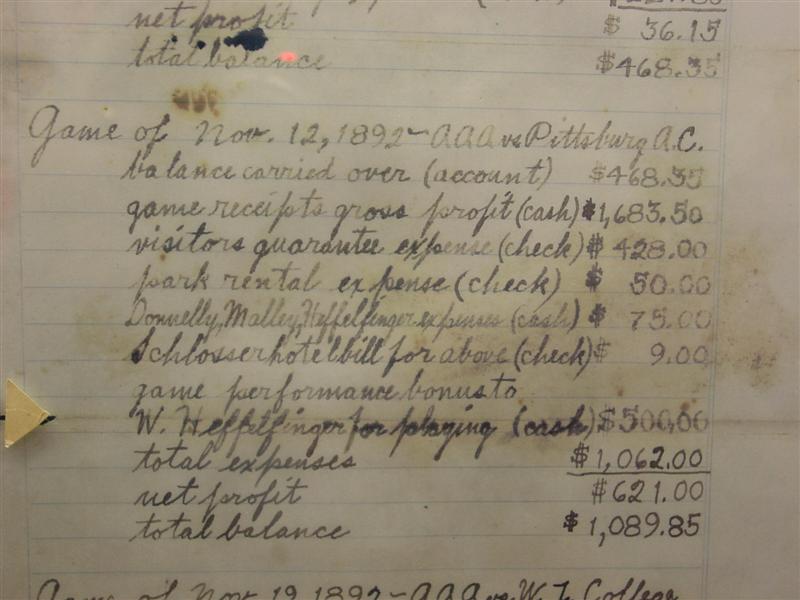 net profit $ 36.15
total balance $468.35
Game of Nov. 12, 1892 - AAA vs Pittsburg A.C.
balance carried over (account) $468.35
game receipts gross profit (cash) $1,683.50
visitors guarantee expense (check) $ 428.00
park rental expense (check) $ 50.00
Donnelly, Malley, Heffelfinger expenses (cash) $ 75.00
Schlosser hotel bill for above (check) $ 9.00
game performance bonus to
W. Heffelfinger for playing (cash) $500.00
total expenses $1,062.00
net profit $621.00
total balance $1,089.85
Game of Nov 19, 1892 - AAA vs W. & J. College